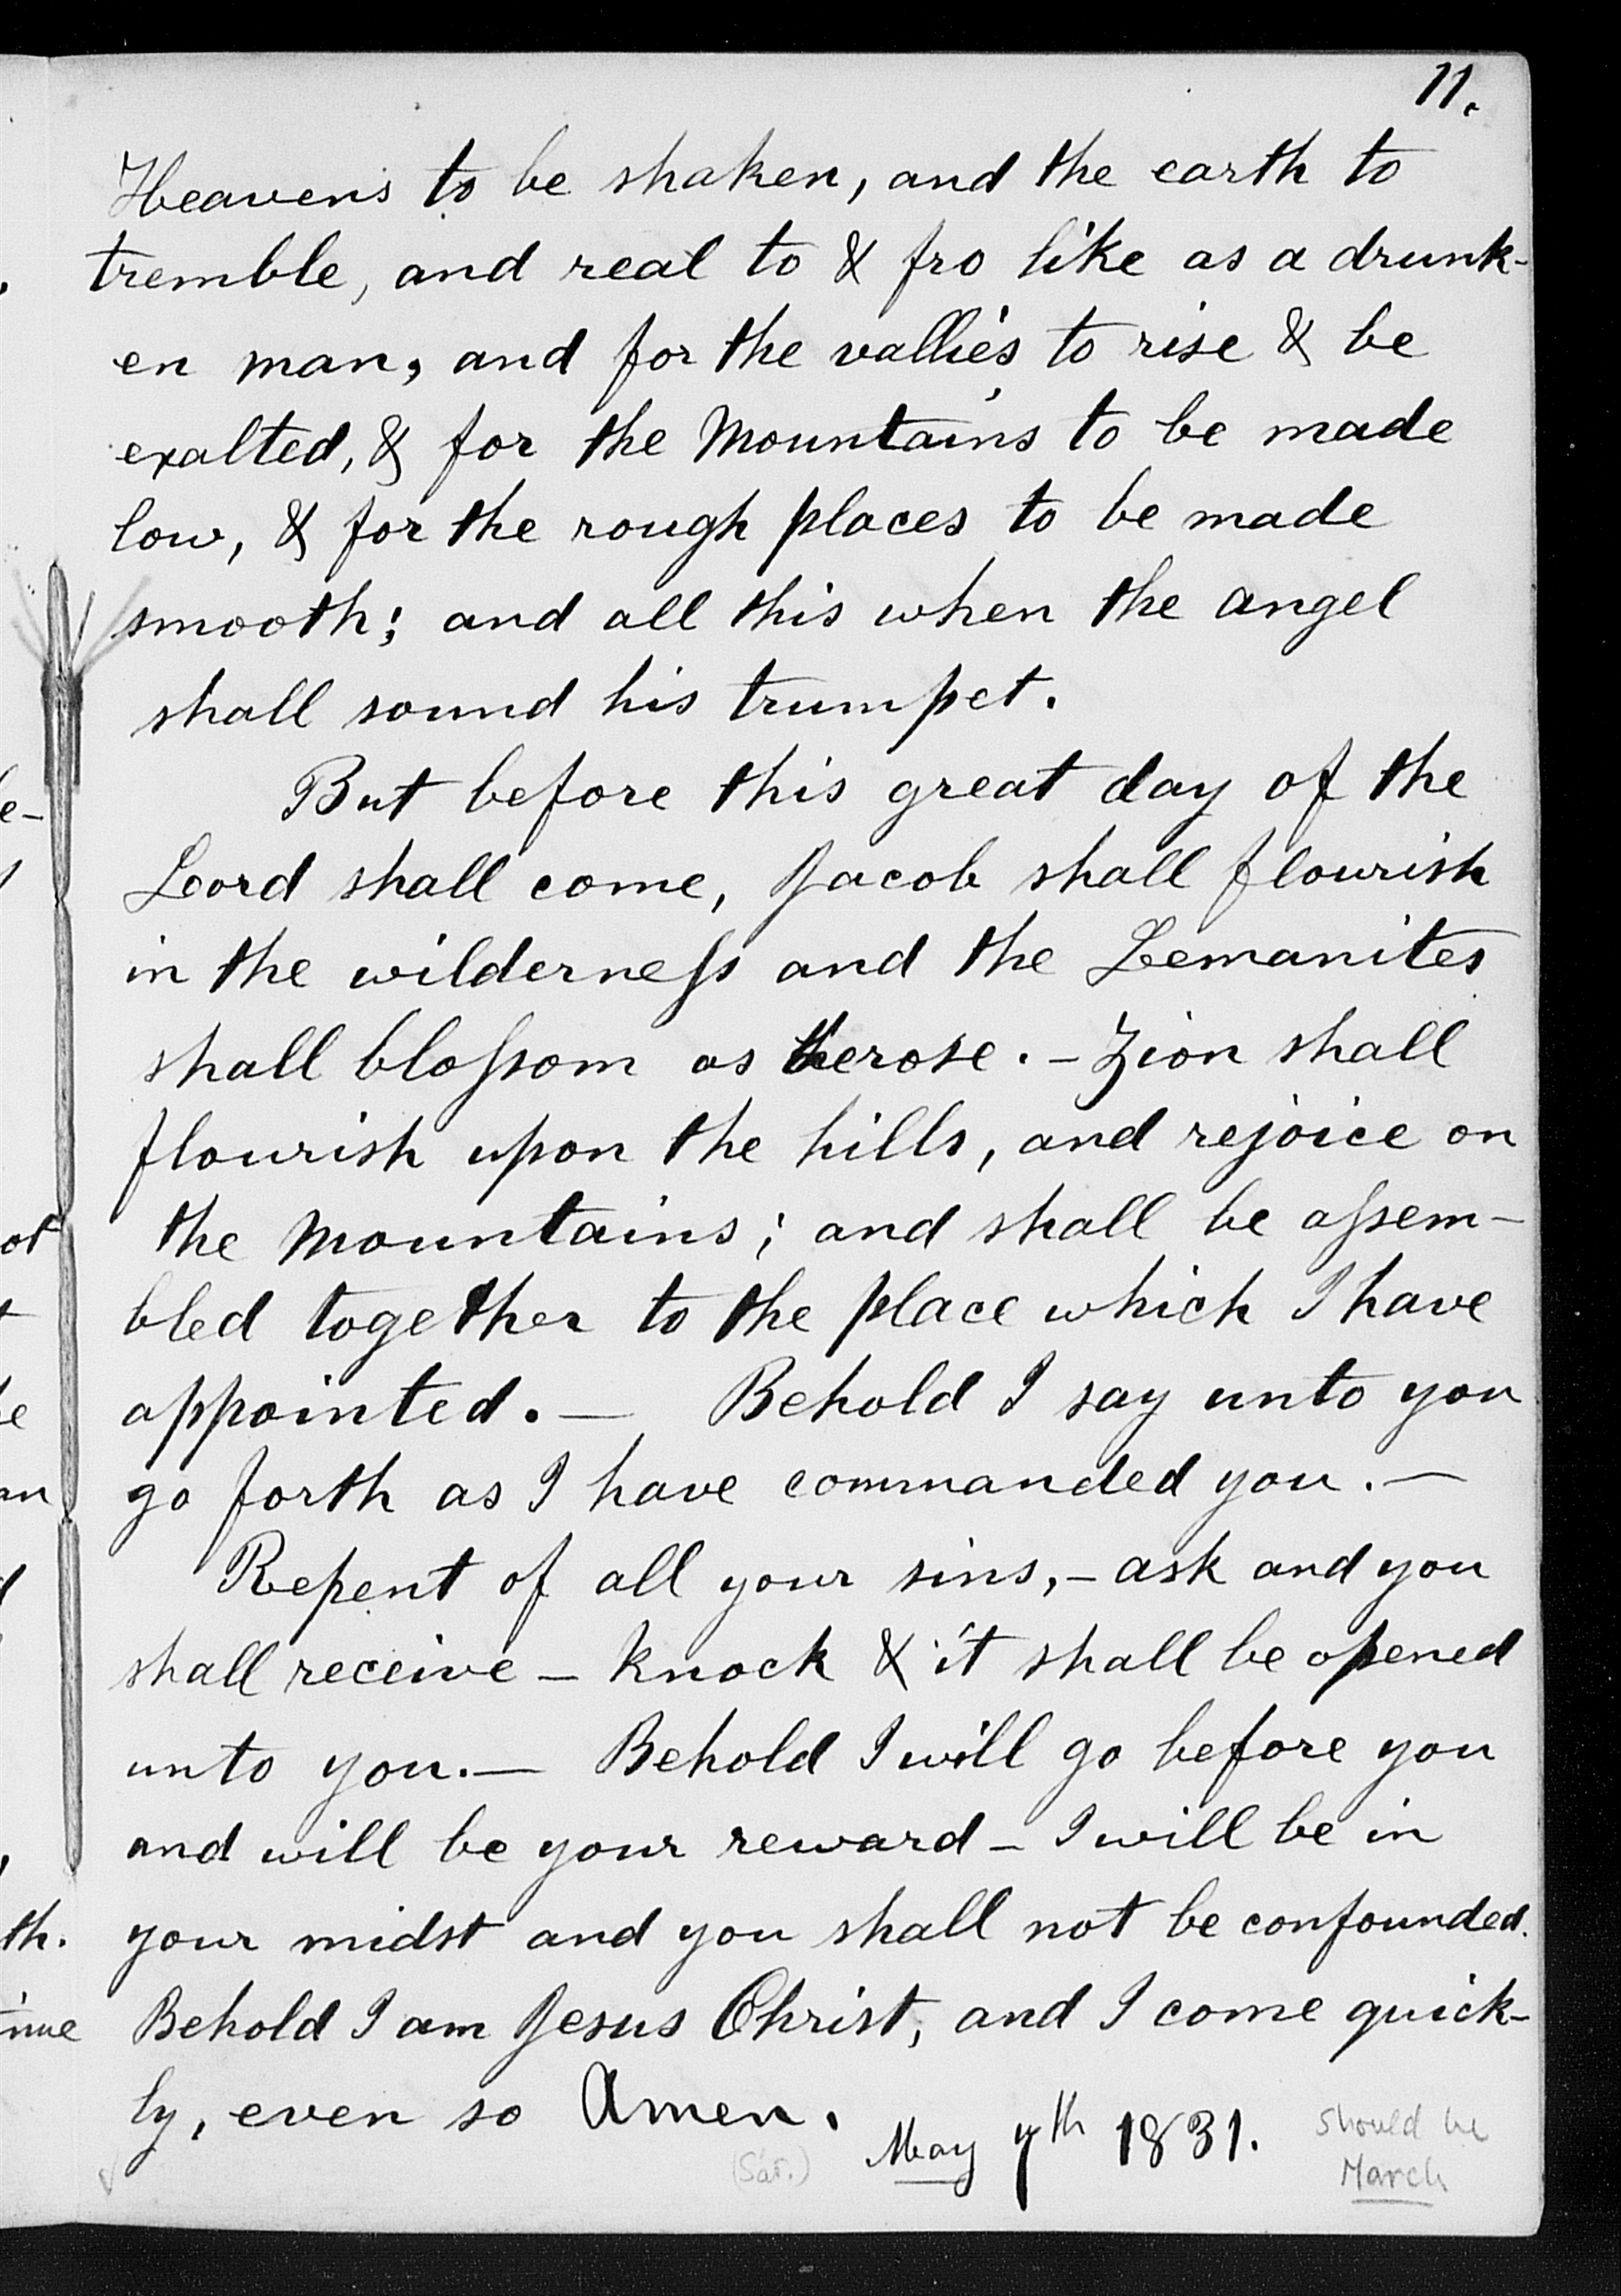 11.
Heavens to be shaken, and the earth to
tremble, and real to & fro like as a drunk-
en man, and for the vallies to rise & be
exalted, & for the Mountains to be made
low, & for the rough places to be made
smooth; and all this when the angel
shall sound his trumpet.
But before this great day of the
Lord shall come, Jacob shall flourish
in the wilderneſs and the Lemanites
shall bloſsom as the rose. - Zion shall
flourish upon the hills, and rejoice on
the Mountains; and shall be aſsem-
bled together to the place which I have
appointed. — Behold I say unto you
go forth as I have commanded you. —
Repent of all your sins, - ask and you
shall receive - Knock & it shall be opened
unto you. — Behold I will go before you
and will be your reward - I will be in
your midst and you shall not be confounded.
Behold I am Jesus Christ, and I come quick-
ly, even so Amen.
(Sat.) May 7th 1831. should be
March